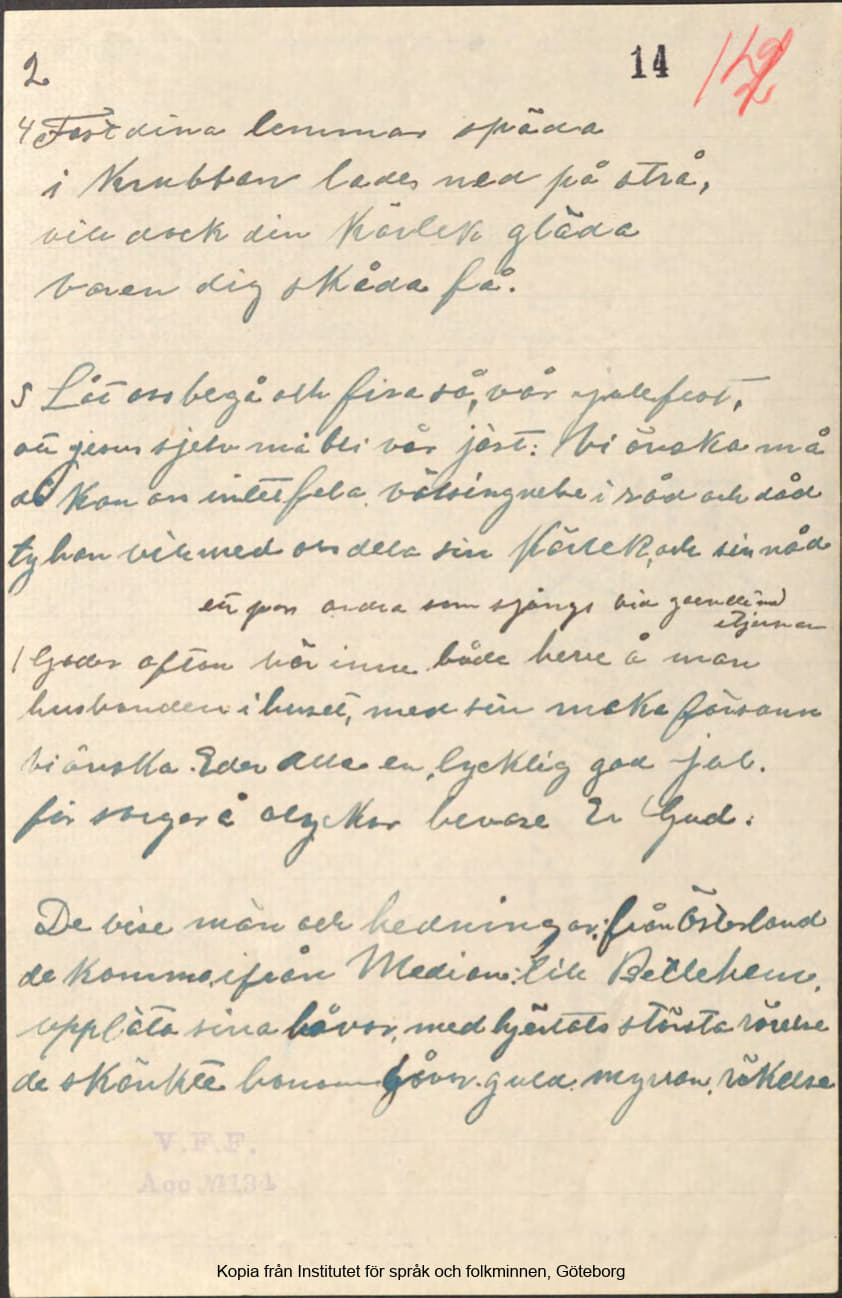 2
14
4 Fast dina lemmar späda
i Krubban lades ned på strå,
vill dock din Kärlek gläda
var en dig skåda få.
5 Låt oss begå och fira så, vår julefest,
att jesus sjelv må bli vår jäst: Vi önska må
då Kan oss intet fela välsingnelse i råd och dåd
ty han vill med oss dela sin Kärlek, och sin nåd
ett par andra som sjöngs vid gåendet med
stjernan
1 Goder afton här inne både herre å man
husbonden i huset, med sin maka försann
Vi önska Eder Alla en, lycklig god jul.
för sorger å olyckor bevare Er Gud:
De vise män och hedningar: från Österland
de komma, ifrån Median: till Betlehem,
upplåta sina håvor, med hjertats största rörelse
de skänkte honom gåvor. guld. myrran, rökelse
V.F.F.
Acc
Kopia från Institutet för språk och folkminnen, Göteborg